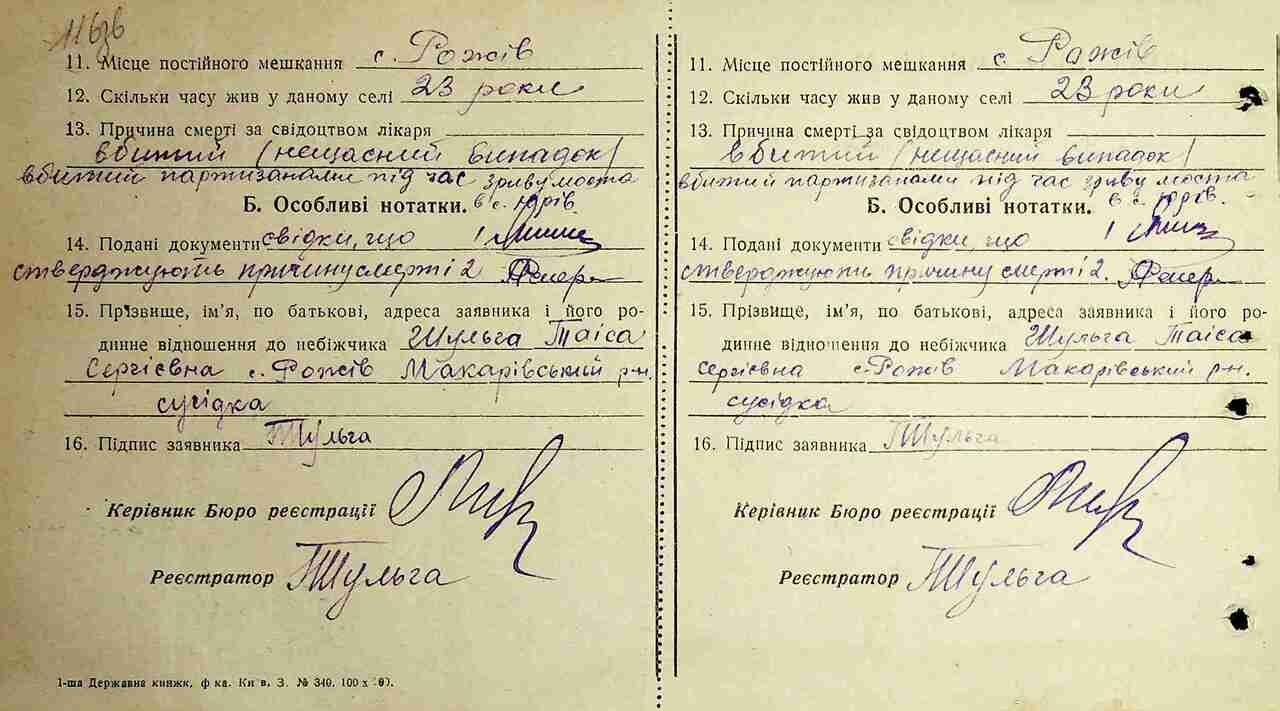 116зв
11. Місце постійного мешкання с. Рожів
12. Скільки часу жив у даному селі 23 роки
13. Причина смерті за свідоцтвом лікаря
вбитий (нещасний випадок)
вбитий партизанами під час зриву моста
Б. Особливі нотатки. в с. Юрів.
14. Подані документи свідки, що 1
стверджують причину смерті 2
15. Прізвище, ім'я, по батькові, адреса заявника і його ро-
динне відношення до небіжчика Шульга Таіса
Сергієвна с. Рожів Макарівський р-н.
сусідка
16. Підпис заявника Шульга
Керівник Бюро реєстрації
Реєстратор Шульга
1-ша Державна книжк. ф-ка. Київ, З. № 340. 100 х
11. Місце постійного мешкання с. Рожів
12. Скільки часу жив у даному селі 23 роки
13. Причина смерті за свідоцтвом лікаря
вбитий (нещасний випадок)
вбитий партизанами під час зриву моста
Б. Особливі нотатки. в с. Юрів.
14. Подані документи свідки, що 1
стверджують причину смерті 2.
15. Прізвище, ім'я, по батькові, адреса заявника і його ро-
динне відношення до небіжчика Шульга Таіса
Сергієвна с. Рожів Макарівський р-н.
сусідка
16. Підпис заявника Шульга
Керівник Бюро реєстрації
Реєстратор Шульга